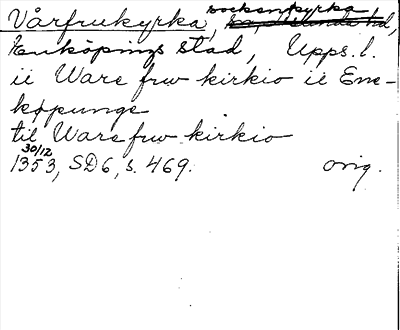 Vårfrukyrka, sockenkyrka
Enköpings stad, Upps. l.
ii Ware frw kirkio ii Ene-
køpunge
til Ware frw kirkio
30/12
1353, SD 6, s. 469. orig.